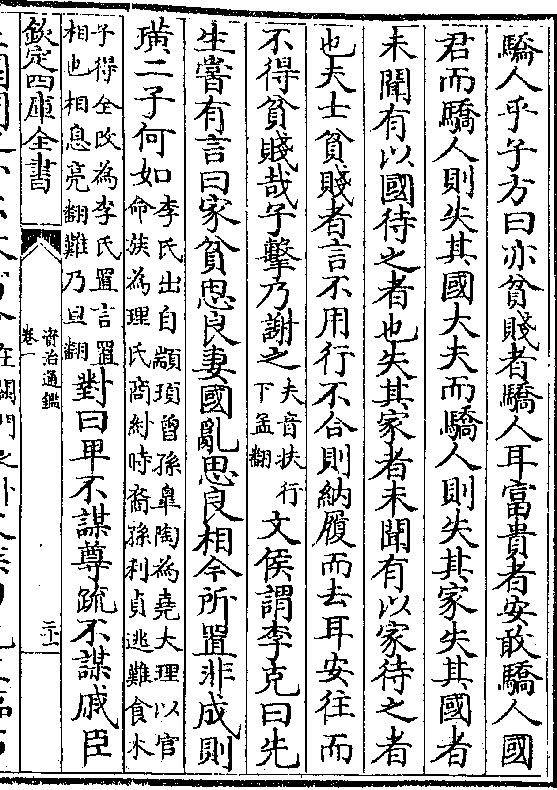 驕人乎子方曰亦貧賤者驕人耳富貴者安敢驕人國
君而驕人則失其國大夫而驕人則失其家失其國者
未聞有以國待之者也失其家者未聞有以家待之者
也夫士貧賤者言不用行不合則納履而去耳安往而
不得貧賤哉子擊乃謝之夫音扶行下孟翻文侯謂李克曰先
生嘗有言曰家貧思良妻國亂思良相今所置非成則
璜二子何如李氏出自顓頊曾孫臯陶為堯大理以官命族為理氏商紂時裔孫利貞逃難食木
子得全改為李氏置言置相也相息亮翻難乃旦翻對曰卑不謀尊疏不謀戚臣
欽定四庫全書
資治通鑑
卷一